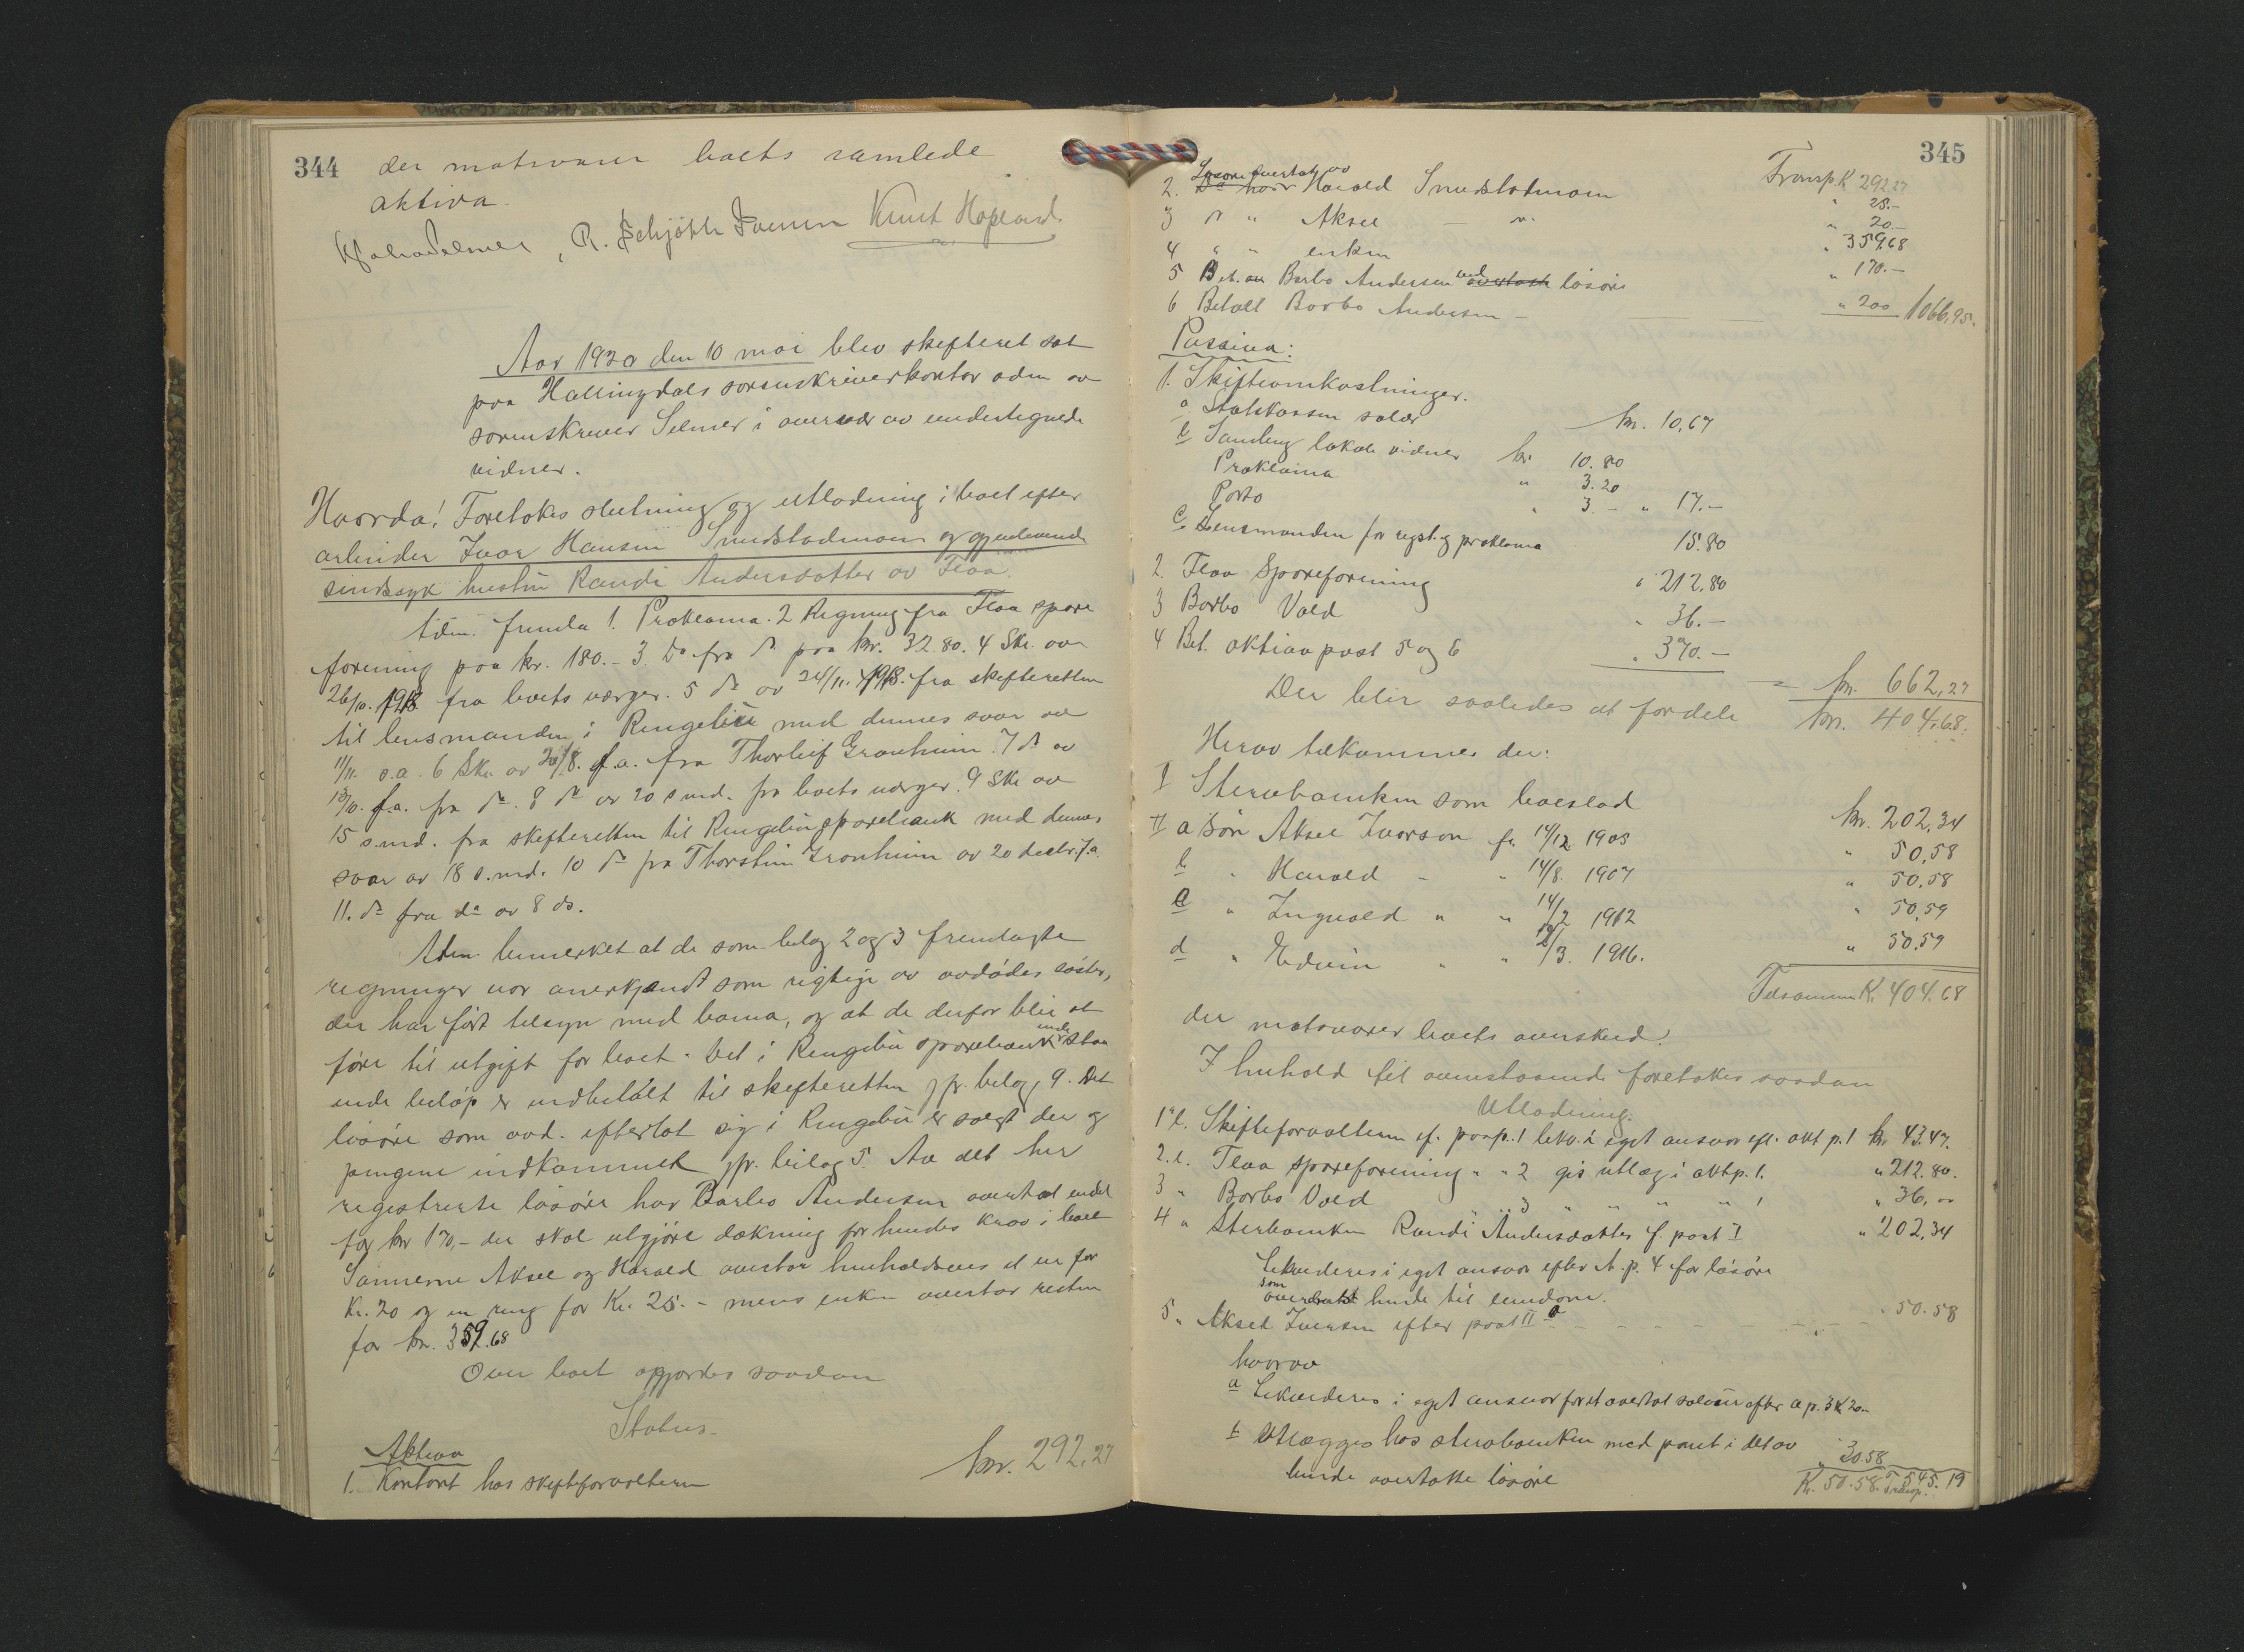 344
der motsvarer boets samlede
aktiva.
R. Schjøth Iversen Knut Hopland
Aar 1920 den 10 mai blev skifteret sat
paa Hallingdals sorenskriverkontor adm av
sorenskriver Selmer i overvær av undertegnede
vidner.
Hvorda! Foretokes slutning og utlodning i boet efter
arbeider Ivar Hansen Smedstadmoen og gjenlevende
sindssyk hustru Randi Andersdatter av Flaa.
Adm. fremla 1. Proklama. 2 Regning fra Flaa spare
forening paa kr. 180.- 3. Do fra do paa kr. 32.80. 4 Skr. av
26/10. 1918 fra boets værger. 5 do av 24/11. 1918. fra skifteretten
til lensmanden i Ringebu med dennes svar av
11/11. s.a. 6 Skr. av 20/8. f.a. fra Thorleif Gronheim. 7 do av
13/10. f.a. fra do. 8 do av 20 s.md. fra boets værger. 9 Skr av
15 s.md. fra skifteretten til Ringebu sparebank med dennes
svar av 18 s.md. 10 do fra Thorstein Gronheim av 20 decbr. f.a.
11. do fra do av 8 ds.
Adm. bemerket at de som bilag 2 og 3 fremlagte
regninger var anerkjendt som rigtige av avdødes søster,
der har ført tilsyn med barna, og at de derfor blir at
føre til utgift for boet. Det i Ringebu sparebank inde staa
ende beløp er indbetalt til skifteretten jfr. bilag 9. Det
løsøre som avd. efterlot sig i Ringebu er solgt der og
pengene indkommet jfr. bilag 5. Av det her
registrerte løsøre har Barbo Andersen overtat endel
for kr 170,- der skal utgjøre dækning for hendes krav i boet
Sønnerne Aksel og Harald overtar henholdsvis et ur for
Kr. 20 og en ring for Kr. 25.- mens enken overtar resten
for kr. 359.68
Over boet opgjordes saadan
Status.
Aktiva
1. Kontant hos skifteforvalteren kr. 292,27
345
Transp. K 292.27
2. Løsøre overtat av Harald Smedstadmoen " 25.-
3 do " Aksel — do. " 20.-
4 " " enken " 359.68
5 Bet. av Barbo Andersen ved løsøre " 170.-
6 Betalt Barbo Andersen — " 200 1066,95.
Passiva:
1. Skifteomkostninger.
a Statskassen salær kr. 10,67
b Samling lokale vidner kr 10.80
Proklama " 3.20
Porto " 3.- " 17.-
c. Lensmanden for regst. og proklama 15.80
2. Flaa Spareforening " 212.80
3 Barbo Vold " 36.-
4 Bet. aktiva post 5 og 6 " 370.-
= kr. 662,27
Der blir saaledes at fordele kr. 404.68.
Herav tilkommer der:
I Stervboenken som boeslod kr. 202,34
II a Søn Aksel Ivarson f. 14/12. 1903 " 50,58
b " Harald - " 14/8. 1907 " 50,58
c " Ingvald " " 14/2 1912 " 50,59
d " Edvin " " /3. 1916. " 50.59
Tilsammen K. 404.68
der motsvarer boets overskud.
I henhold til ovenstaaende foretokes saadan
Utlodning:
1. l. Skifteforvalteren ef. pasp. 1 likv. i eget ansvar eft. akt p. 1 kr 43.47.
2. l. Flaa spareforening " " 2 gis utlæg i aktp. 1. " 212.80.
3 " Barbo Vold " " 3 " " " 1 " 36,00
4 " Sterboenken Randi Andersdatter ef. post I " 202,34
Likvideres i eget ansvar efter A. p. 4 for løsøre
som overdrat hende til eiendom.
5. " Aksel Iversen efter post II a " 50.58
hvorav
a Likvideres i eget ansvar for et overtat salsur efter a p. 3 K 20.-
b Utlægges hos stervboenken med pant i det av
hende overtatte løsøre " 30.58
K. 50.58. Transp. 545.19